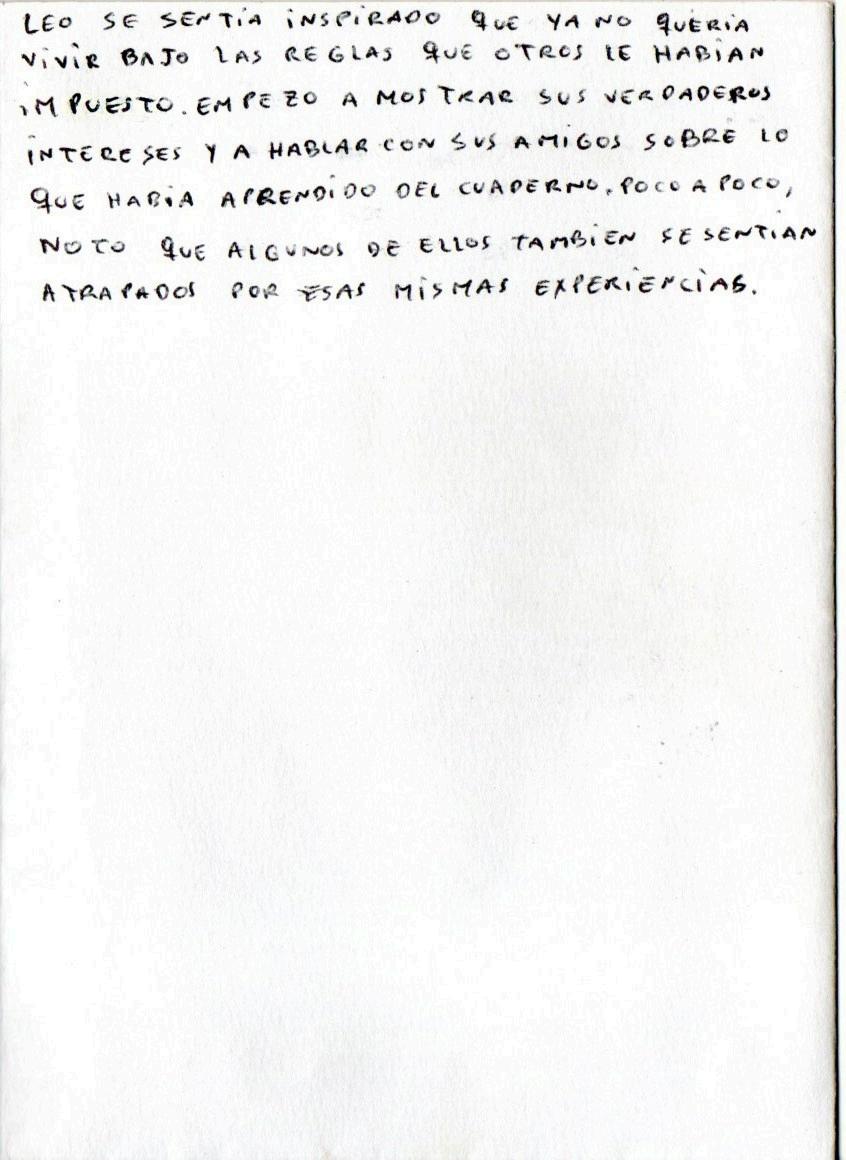 LEO SE SENTIA INSPIRADO QUE YA NO QUERIA
VIVIR BAJO LAS REGLAS QUE OTROS LE HABIAN
IMPUESTO. EMPEZO A MOSTRAR SUS VERDADEROS
INTERESES Y A HABLAR CON SUS AMIGOS SOBRE LO
QUE HABIA APRENDIDO DEL CUADERNO. POCO A POCO,
NOTO QUE ALGUNOS DE ELLOS TAMBIEN SE SENTIAN
ATRAPADOS POR ESAS MISMAS EXPERIENCIAS.